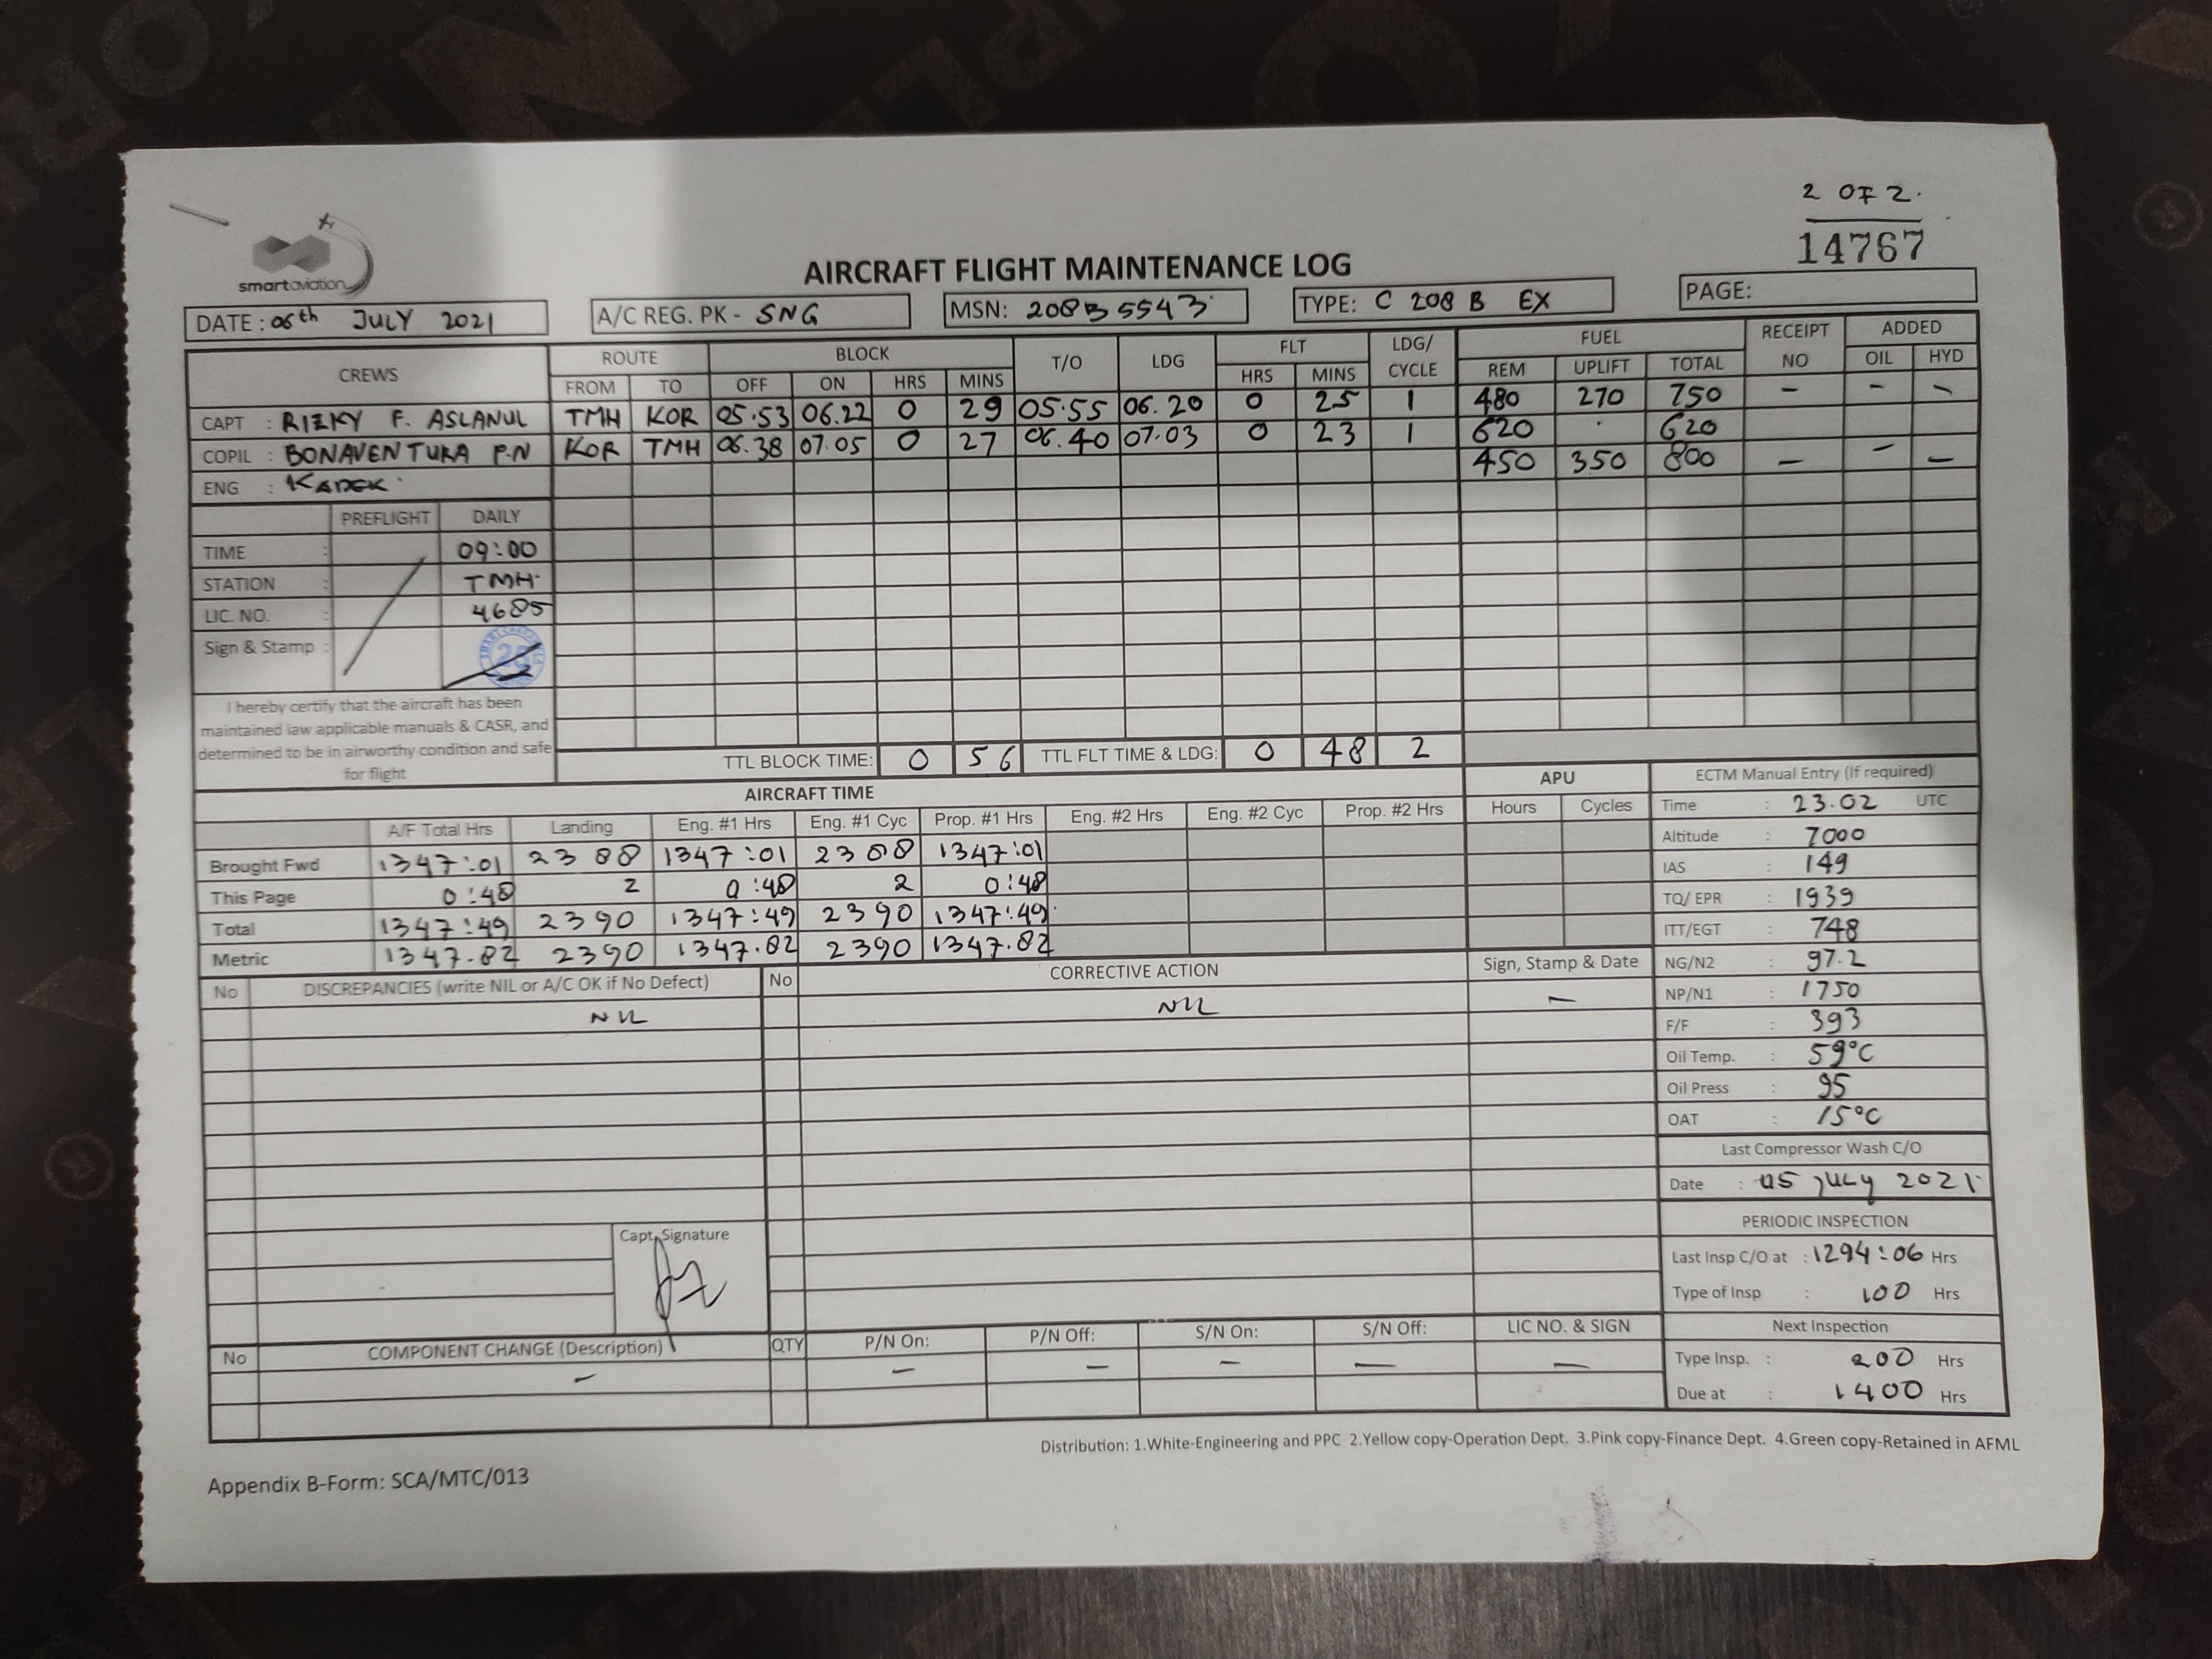 2 OF 2.
14767
smartaviation
AIRCRAFT FLIGHT MAINTENANCE LOG
DATE : 06th JULY 2021 A/C REG. PK - SNG MSN: 208B5543 TYPE: C 208 B EX PAGE:
CREWS ROUTE BLOCK T/O LDG FLT LDG/ CYCLE FUEL RECEIPT NO ADDED
FROM TO OFF ON HRS MINS HRS MINS REM UPLIFT TOTAL OIL HYD
CAPT : RIZKY F. ASLANUL TMH KOR 05.53 06.22 0 29 05.55 06.20 0 25 1 480 270 750 - - -
COPIL : BONAVENTURA P.N KOR TMH 06.38 07.05 0 27 06.40 07.03 0 23 1 620 . 620
ENG : KADEK 450 350 800 - - -
PREFLIGHT DAILY
TIME : 09:00
STATION : TMH
LIC. NO. : 4685
Sign & Stamp : 25
I hereby certify that the aircraft has been
maintained iaw applicable manuals & CASR, and
determined to be in airworthy condition and safe
for flight
TTL BLOCK TIME: 0 56 TTL FLT TIME & LDG: 0 48 2
AIRCRAFT TIME APU
A/F Total Hrs Landing Eng. #1 Hrs Eng. #1 Cyc Prop. #1 Hrs Eng. #2 Hrs Eng. #2 Cyc Prop. #2 Hrs Hours Cycles
Brought Fwd 1347:01 2388 1347:01 2388 1347:01
This Page 0:48 2 0:48 2 0:48
Total 1347:49 2390 1347:49 2390 1347:49
Metric 1347.82 2390 1347.82 2390 1347.82
ECTM Manual Entry (If required)
Time : 23.02 UTC
Altitude : 7000
IAS : 149
TQ/ EPR : 1939
ITT/EGT : 748
NG/N2 : 97.2
NP/N1 : 1750
F/F : 393
Oil Temp. : 59°C
Oil Press : 95
OAT : 15°C
Last Compressor Wash C/O
Date : 05 JULY 2021
PERIODIC INSPECTION
Last Insp C/O at : 1294:06 Hrs
Type of Insp : 100 Hrs
Next Inspection
Type Insp. : 200 Hrs
Due at : 1400 Hrs
No DISCREPANCIES (write NIL or A/C OK if No Defect) No CORRECTIVE ACTION Sign, Stamp & Date
NIL NIL -
Capt. Signature
No COMPONENT CHANGE (Description) QTY P/N On: P/N Off: S/N On: S/N Off: LIC NO. & SIGN
- - - - - -
Distribution: 1.White-Engineering and PPC 2.Yellow copy-Operation Dept. 3.Pink copy-Finance Dept. 4.Green copy-Retained in AFML
Appendix B-Form: SCA/MTC/013